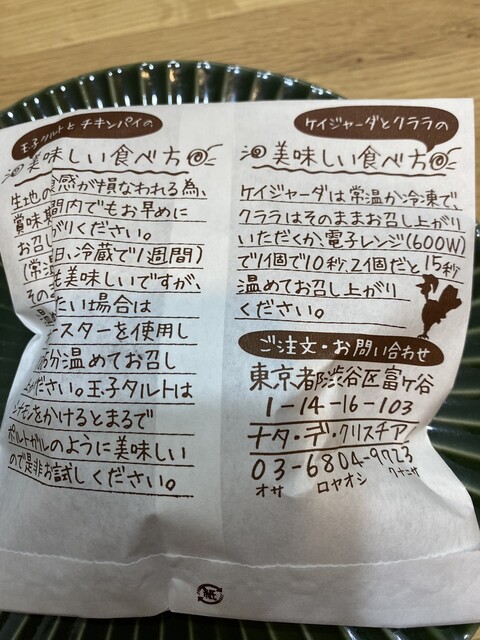 玉子タルトとチキンパイの
美味しい食べ方
生地の食感が損なわれる為、
賞味期間内でもお早めに
お召し がりください。
(常 日、冷蔵で1週間)
その も美味しいですが、
たい場合は
ースターを使用し
分温めてお召し
ください。玉子タルトは
シナモンをかけるとまるで
ポルトガルのように美味しい
ので是非お試しください。
ケイジャーダとクララの
美味しい食べ方
ケイジャーダは常温か冷凍で、
クララはそのままお召し上がり
いただくか、電子レンジ(600W)
で1個で10秒、2個だと15秒
温めてお召し上がり
ください。
ご注文・お問い合わせ
東京都渋谷区富ヶ谷
1-14-16-103
ナタ・デ・クリスチアノ
03-6804-9723
オサ ロヤオシ クナニサ
紙